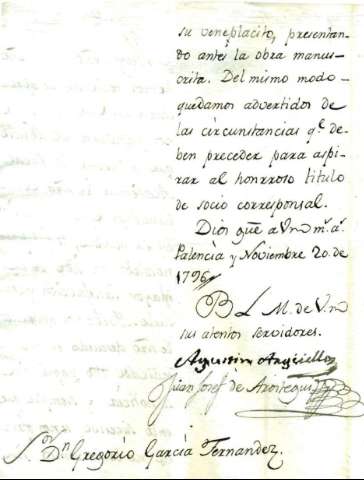 su veneplacito, presentan-
do antes la obra manus-
crita. Del mismo modo
quedamos advertidos de
las circunstancias q.e de
ben preceder para aspi-
rar al honrroso titulo
de socio corresponsal.
Dios gũe a Vm m.s a.s
Palencia y Noviembre 20. de
1796
B L M. de Vm
sus atentos servidores.
Agustin Argüello
Juan Josef de Arostegui
S.or D.n Gregorio Garcia Fernandez.